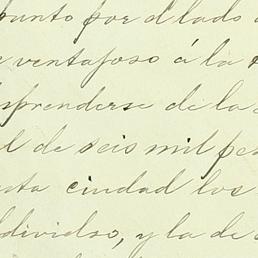 punto por dl lado
ventajoso á la
sprenderse de la
l de seis mil pe
uta ciudad los
ldividso, y la de